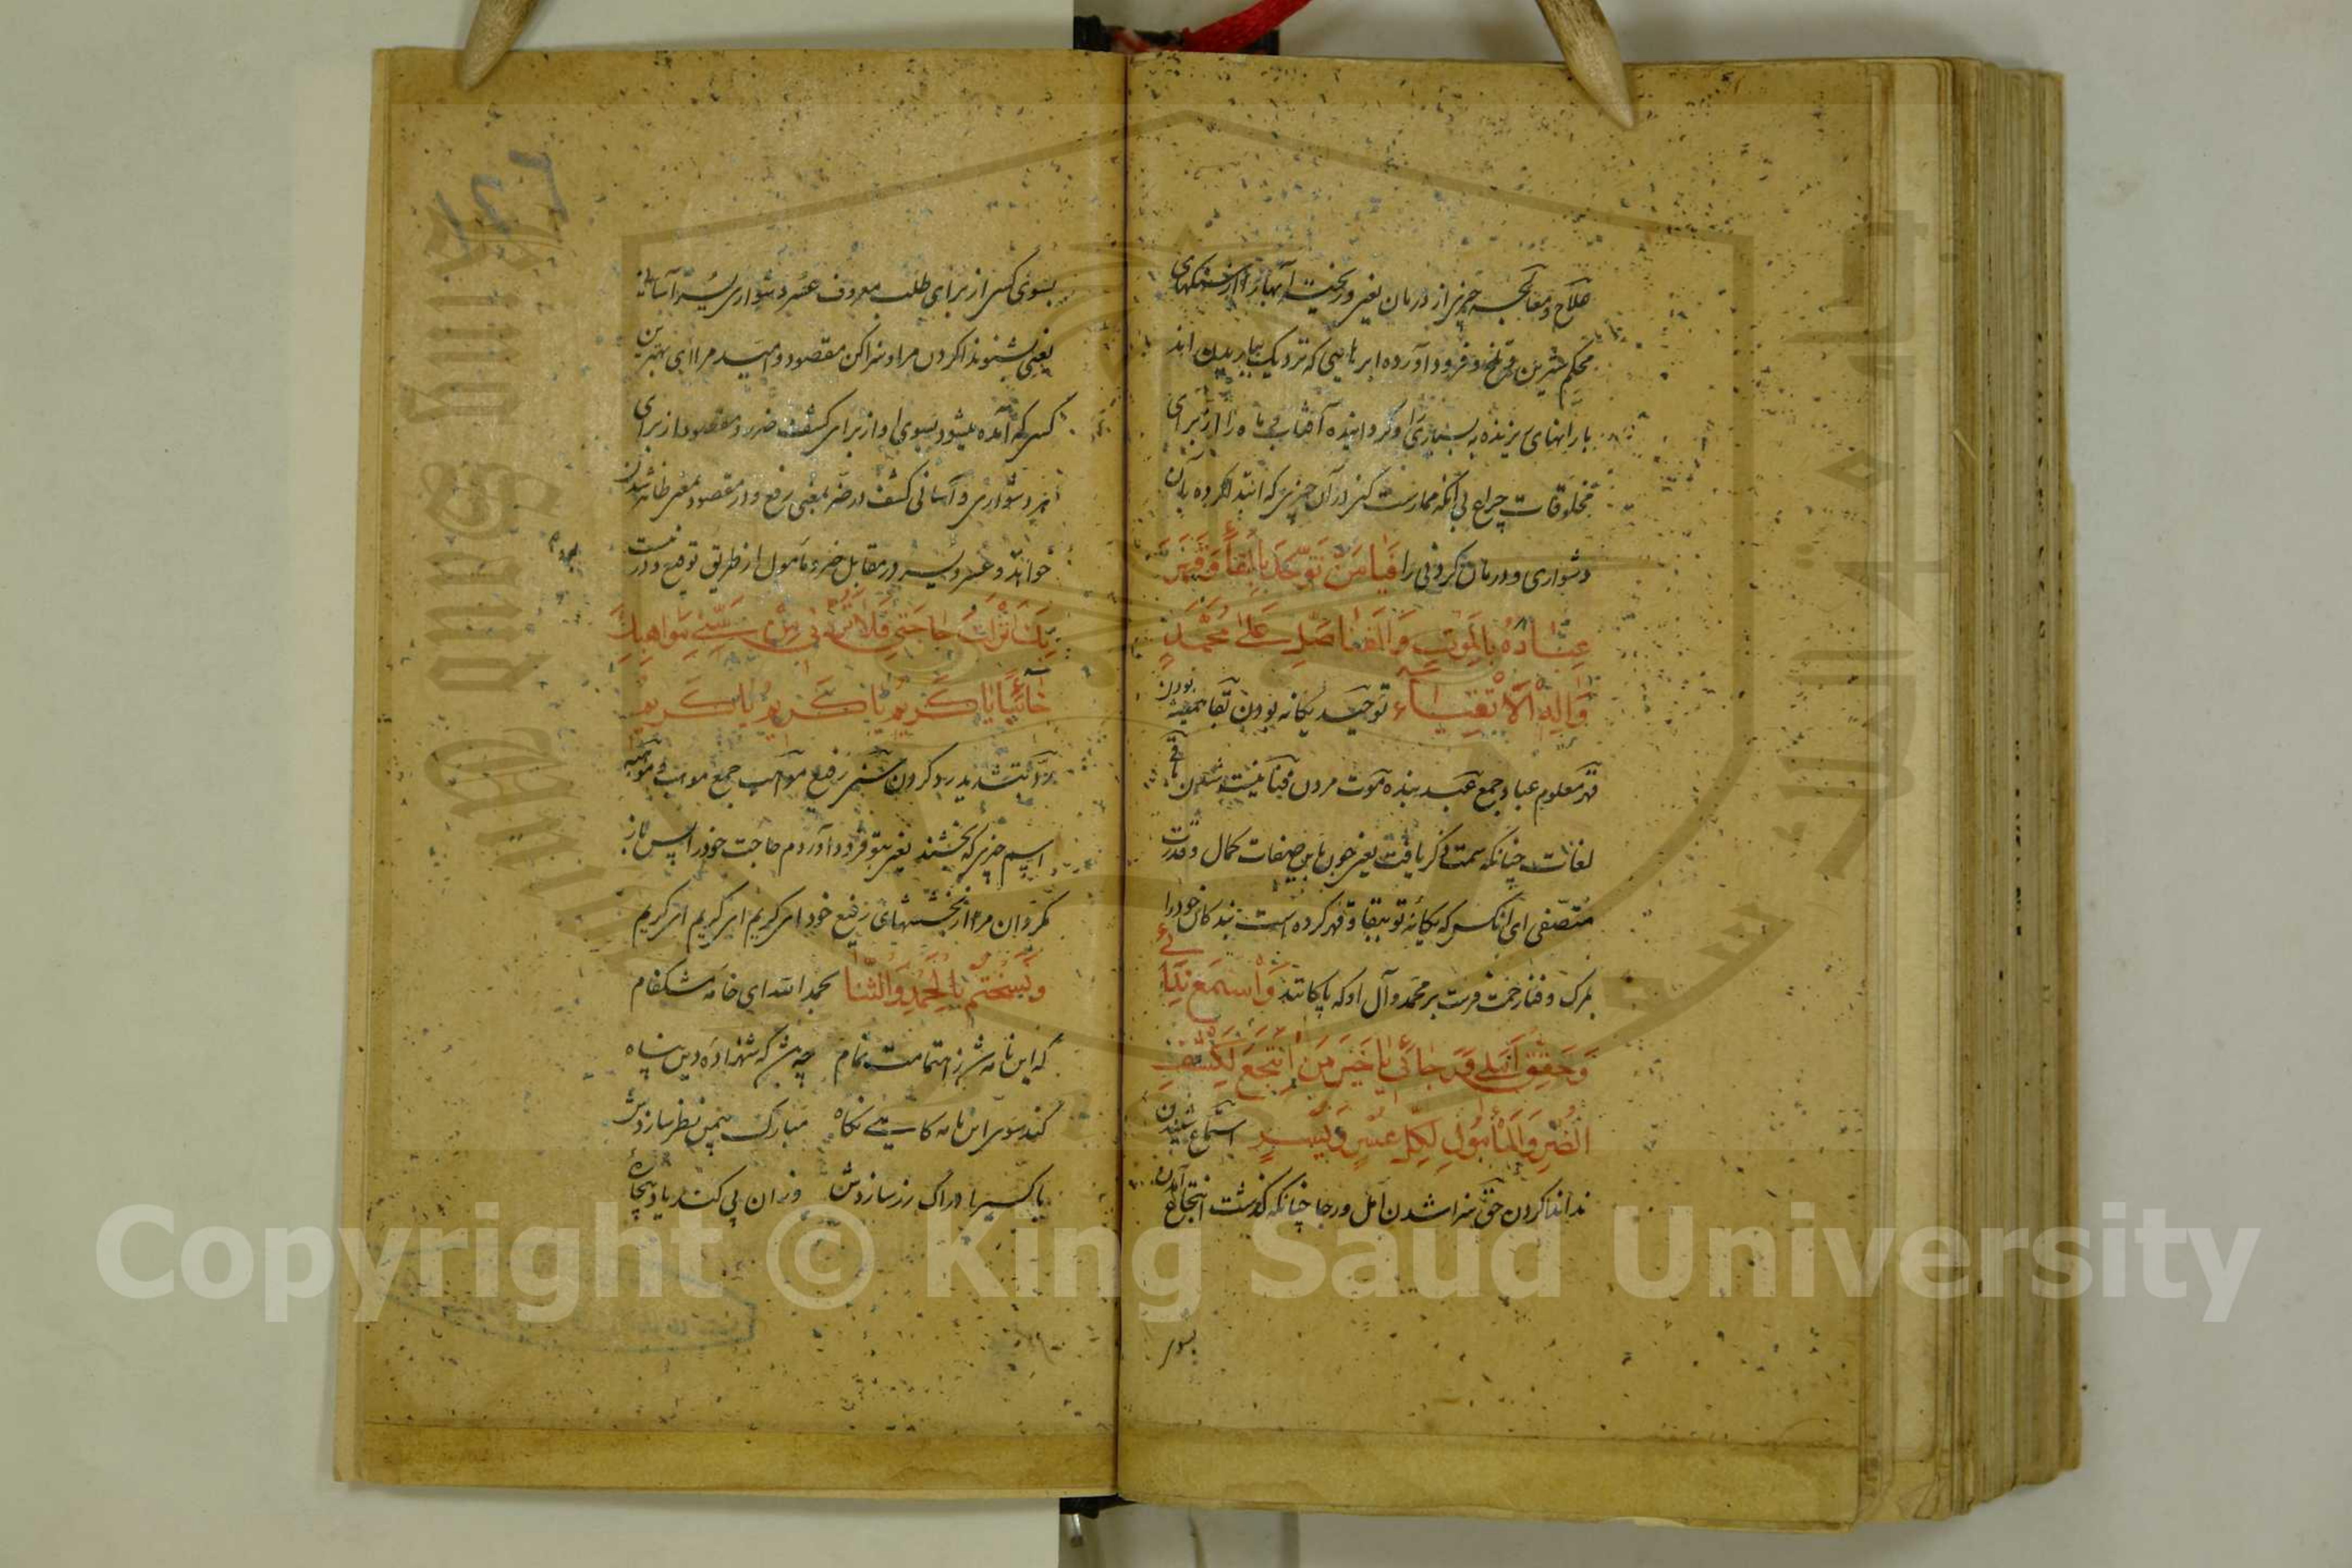 علاج و معالجه چیزی از درمان یعنی و ریختی آبها را از سنگهای
محکم شیرین و تلخ و فرود آورده ابرهایی که نزدیک بباریدن اند
بارانهای ریزنده به بسیاری و گردانیده آفتاب و ماه را از برای
مخلوقات چراغ بی آنکه ممارست کنی در آن چیزی که ابتدا کرده بآن
دشواری و درمان کردنی را فَيَا مَنْ تَوَحَّدَ بِالْبَقَاءِ وَقَهَرَ
عِبَادَهُ بِالْمَوْتِ وَالْفَنَاءِ صَلِّ عَلَىٰ مُحَمَّدٍ
وَآلِهِ الْأَتْقِيَاءِ توحید یگانه بودن بقا همیشه بودن
قهر معلوم عباد جمع عبد بنده موت مردن فنا نیست شدن باقی
لغات چنانکه سمت ذکر یافت یعنی چون باین صفات کمال و قدرت
متصفی ای آنکس که یگانهٔ تو ببقا و قهر کرده است بندگان خود را
بمرگ و فنا رحمت فرست بر محمد و آل او که پاکانند وَاسْمَعْ نِدَائِي
وَحَقِّقْ أَمَلِي وَرَجَائِي يَا خَيْرَ مَنِ انْتُجِعَ لِكَشْفِ
الضُّرِّ وَالْمَأْمُولِ لِكُلِّ عُسْرٍ وَيُسْرٍ استماع شنیدن
ندا ندا کردن حق سزا شدن امل و رجا چنانکه گذشت انتجاع آمدن
بسوی
بسوی کسی از برای طلب معروف عسر دشواری یسر آسانی
یعنی بشنو ندا کردن مرا و سزا کن مقصود و امید مرا ای بهترین
کسی که آمده میشود بسوی او از برای کشف ضرر و مقصود از برای
هر دشواری و آسانی کشف در ضر بمعنی رفع و در مقصود بمعنی ظاهر شدن
خواند و عسر و یسر در مقابل ضر و مأمول از طریق توضیع و در نیست
بِكَ أَنْزَلْتُ حَاجَتِي فَلَا تَرُدَّنِي مِنْ سَنِيِّ مَوَاهِبِكَ
خَائِبًا يَا كَرِيمُ يَا كَرِيمُ يَا كَرِيمُ
ردّ بتشدید رد کردن سنی رفیع مواهب جمع موهبت و موهبه
اسم چیزی که بخشند یعنی بتو فرود آوردم حاجت خود را پس باز
مگردان مرا از بخششهای رفیع خود ای کریم ای کریم ای کریم
وَيُسَخْتَمُ بِالْحَمْدِ وَالثَّنَا بحمد الله ای خامهٔ مشکفام
که این نامه شد ز اهتمامت تمام چه شد که شهزاده دین پناه
کند سوی این نامه گاهی نگاه مبارک بیمن نظر سازدش
باکسیر ادراک زر سازدش